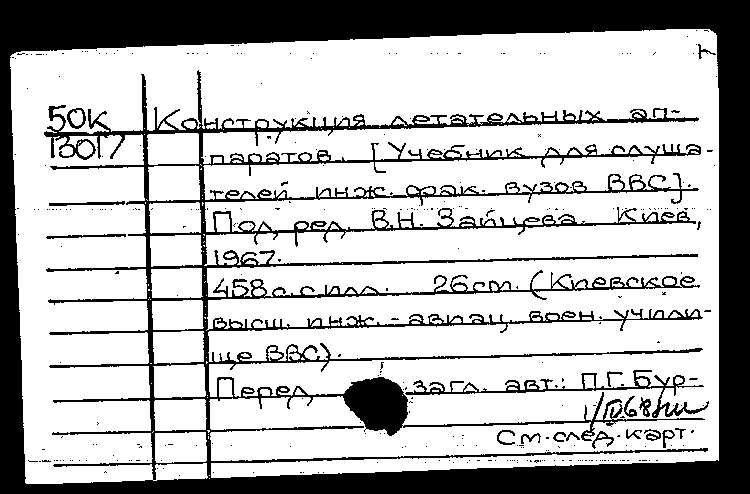 50К Конструкция летательных ап-
13017 паратов. [Учебник для слуша-
телей инж. фак. вузов ВВС].
Под ред. В.Н. Зайцева. Киев,
1967.
458 с. с илл. 26 cm. (Киевское
высш. инж.-авиац. воен. учили-
ще ВВС).
Перед загл. авт.: П.Г. Бур-
См. след. карт.